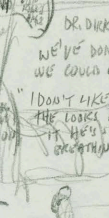 DR. DICK
WE'VE DON
WE COULD
"I DON'T LIKE
THE LOOKS
IT HE'S
BREATHIN